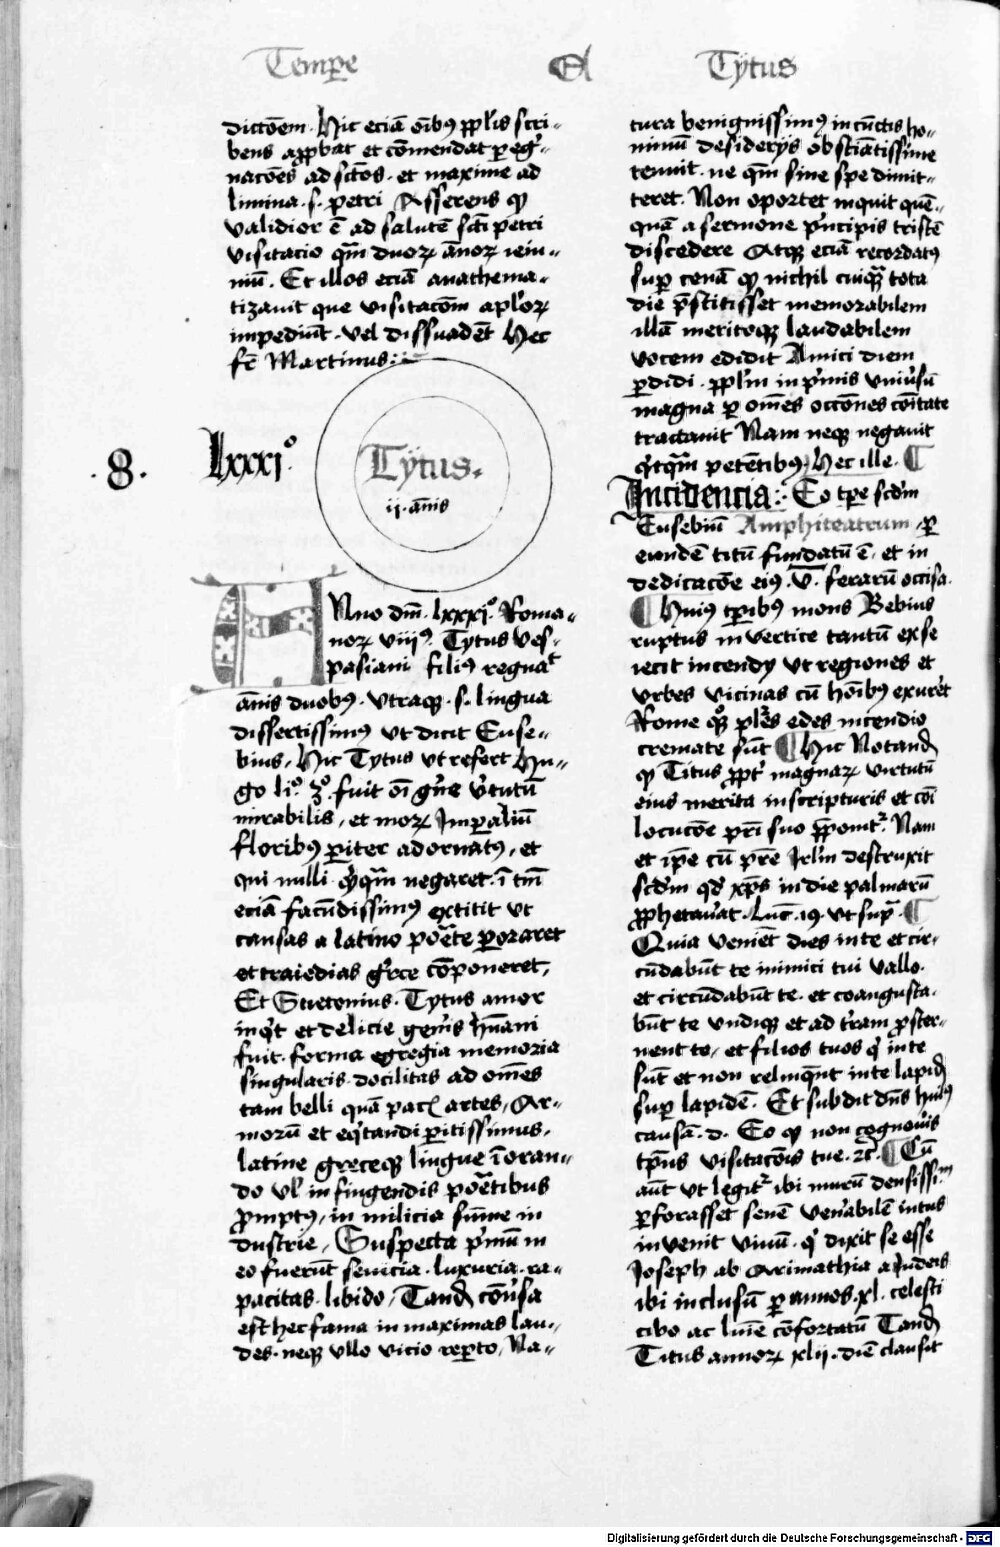 Tempe El Tytus
dictōem. Hic eciā oībꝰ ppl'is scri-
bens approbat et cōmendat pereg'-
nacōēs ad sctōs. et maxime ad
limina .s. petri Asserens qꝫ
validior ē ad salutē scti petri
visitacio qm̄ duoꝝ ānoꝝ ieiu-
niū. Et illos eciā anathema-
tizauit que visitacōm aplōꝝ
impediūt. vel dissuadēt Hec
fr̄ Martinus:
.8. lxxxiº. Tytus.
ii. ānis
Anno dnī. lxxxiº. Roma-
noꝝ viiijꝰ. Tytus Ves-
pasiani filiꝰ regnat
ānis duobꝰ. vtraqꝫ .s. lingua
dissertissimꝰ vt dicit Euse-
bius. Hic Tytus vt refert Hu-
go li.º 3.º fuit oī gn̄e v'tutū
mirabilis, et moꝝ Imperaliū
floribꝰ pariter adornatꝰ, et
qui nulli qͥcqm̄ negaret. ī tm̄
eciā facūdissimꝰ extitit vt
causas a latino poēte peroraret
et traiedias grece cōponeret,
Et Suetonius. Tytus amor
inqͥt et delicie gen'is hūani
fuit. forma egregia memoria
singularis. docilitas ad omēs
tam belli quā paci artes, Ar-
morū et eqͥtandi peritissimus,
latine greceqꝫ lingue ī oran-
do vl' in fingendis poētibus
promptꝰ, in milicia sūme in
dustrie, Suspecta p'mū in
eo fuerūt seuicia. luxuria. ra-
pacitas. libido, Tandē cōu'sa
est hec fama in maximas lau-
des. neqꝫ vllo vicio reperto, Na-
tura benignissimꝰ in cūctis ho-
minū desiderijs obstiātissime
tenuit. ne qm̄ sine spe dimit-
teret. Non oportet inquit quē-
quā a sermone p'ncipis tristē
discedere Atqꝫ eciā recordatꝰ
super cenā qꝫ nichil cuiqꝫ tota
die p̄stitisset memorabilem
illā meritoqꝫ laudabilem
vocem edidit Amici diem
perdidi. ppl'm in p'mis vniu'sū
magna per omēs occōnes cōitate
tractauit Nam neqꝫ negauit
qͥcqm̄ petentibꝰ. Hec ille.
Incidencia: Eo tpe scdm
Eusebiū Amphiteatrum. per
eiundē titū fundatū ē. et in
dedicacōe eiꝰ .v̄. ferarū occisa.
Huiꝰ tpibꝰ mons Bebius
ruptus in vertice tantū ex se
iecit incendij vt regiones et
vrbes vicinas cū hoībꝰ exur'et
Rome qꝫ pl'es edes incendio
cremate sūt Hic Notandū
qꝫ Titus propt' magnaꝝ virtutū
eius merita in scripturis et cōi
locucōe pr̄i suo p̄ponit̃. Nam
et ip̄e cū pr̄e Irl'm destruxit
scdm qd' xps in die palmarū
prophetau'at. Luc. 19. vt supra.
Quia venient dies in te et cir-
cūdabūt te inimici tui vallo.
et circūdabūt te. et coangusta-
būt te vndiqꝫ et ad t'ram proster-
nent te, et filios tuos qͥ in te
sūt et non relinqͣnt in te lapidē
super lapidē. Et subdit dn̄s huiꝰ
causā. d. Eo qꝫ non cognouis
tp̄us visitacōis tue. ꝛc̄. Cū
aūt vt legit̃ ibi murū densissi.ᵐ
perforasset senē ven'abilē intus
inuenit viuū. qͥ dixit se esse
Joseph ab Arimathia a Judeis
ibi inclusū per annos. xl. celesti
cibo ac lum̄e cōfortatū Tandē
Titus annoꝝ xlij. diē clausit
Digitalisierung gefördert durch die Deutsche Forschungsgemeinschaft - DFG